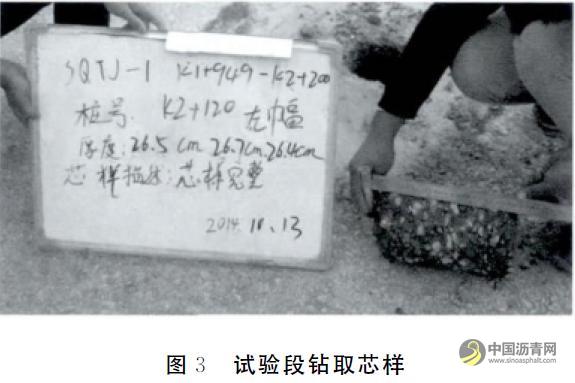 SQTJ-1 K1+949-K2+200
桩号: K2+120 左幅
厚度: 26.5cm 26.7cm 26.4cm
芯样描述: 芯样完整
2014.10.13
图 3 试验段钻取芯样
中国沥青网
www.sinoasphalt.com